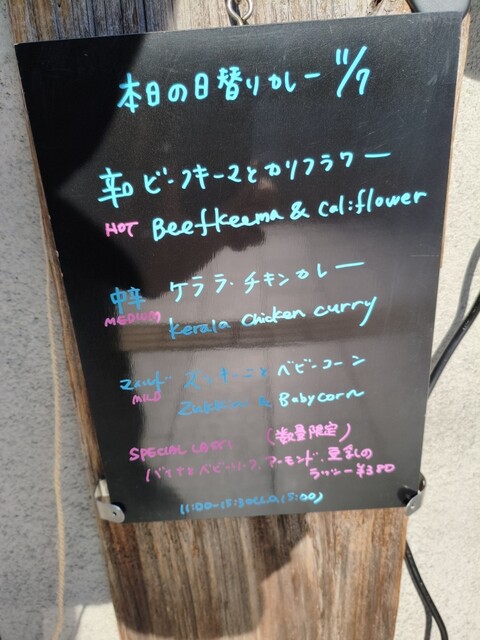 本日の日替りカレー 11/7
辛口 ビーフキーマとカリフラワー
HOT Beefkeema & Cal:flower
中辛 ケララ・チキンカレー
MEDIUM Kerala chicken curry
マイルド ズッキーニとベビーコーン
MILD & Babycorn
SPECIAL LASSI (数量限定)
ベビーリーフ、アーモンド、豆乳の
ラッシー ¥380
11:00-15:30(L.O 15:00)